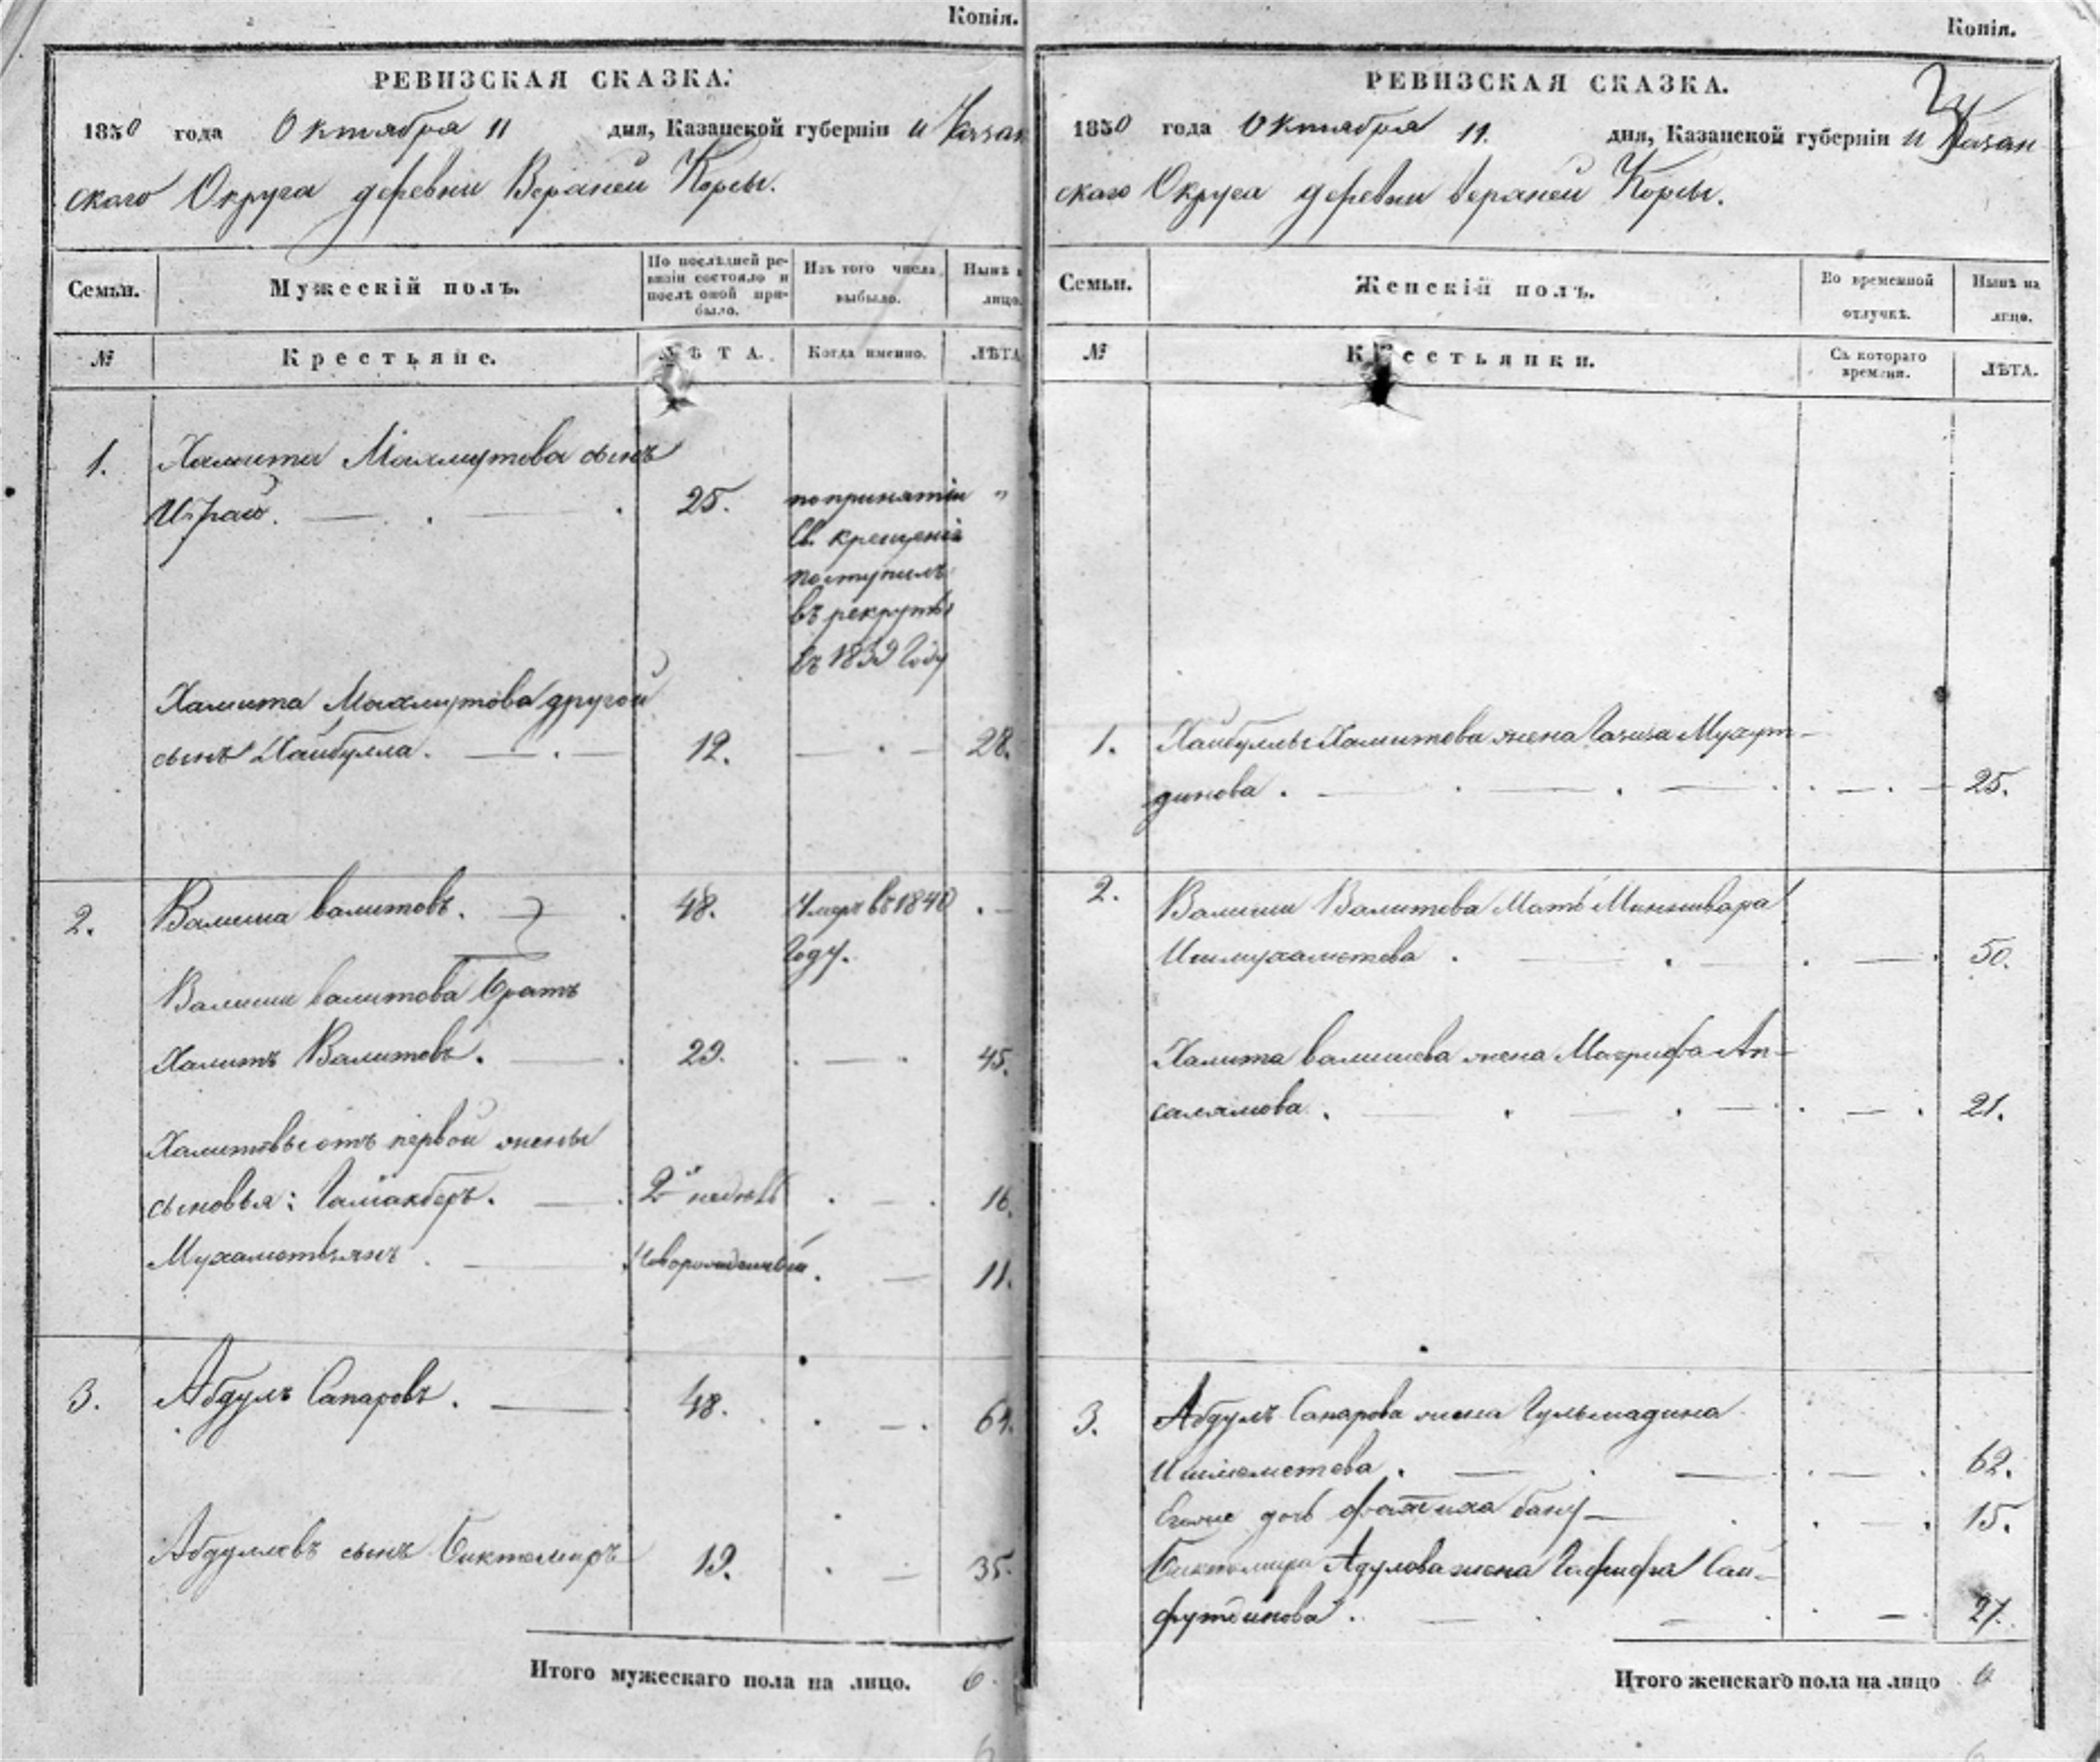 Копія.
РЕВИЗСКАЯ СКАЗКА.
1850 года Октября 11 дня, Казанской губерніи и Казан
скаго Округа деревни Верхней Корсы.
Семьи.
Мужескій полъ.
По послѣдней ре-
визіи состояло и
послѣ оной при-
было.
Изъ того числа
выбыло.
Нынѣ
лицо.
№
Крестьяне.
ЛѢТА.
Когда именно.
ЛѢТА
1. Хамита Махмутова сынъ
25. по принятіи "
Св. крещенія
поступилъ
въ рекруты
въ 1839 году
Хамита Махмутова другой
сынъ Хайбулла. 12. 28.
2. Валиша Валитовъ. 48. Умеръ въ 1840
году.
Валиши Валитова братъ
Халитъ Валитовъ. 29. 45.
Халитовы отъ первой жены
сыновья: Галіакберъ. 2 недѣль 16.
Мухаметзянъ новорожденный 11.
3. Абдулъ Сапаровъ. 48. 64.
Абдулевъ сынъ Биктемиръ 19. 35.
Итого мужескаго пола на лицо. 6.
Копія.
РЕВИЗСКАЯ СКАЗКА.
1850 года Октября 11. дня, Казанской губерніи и Казан
скаго Округа деревни Верхней Корсы.
Семьи.
Женскій полъ.
Во временной
отлучкѣ.
Нынѣ на
лицо.
№
Крестьянки.
Съ котораго
времени.
ЛѢТА.
1. Хайбуллы Хамитова жена Газиза Мухут-
динова. 25.
2. Валиши Валитова Мать
Ишмухаметова 50.
Халита жена Магрифа Ап-
салямова. 21.
3. Абдулъ Сапарова жена Гульмадина
Ишмаметева. 62.
дочь Фатиха бану 15.
Биктемира Адулова жена Гафифа Сай-
футдинова. 27.
Итого женскаго пола на лицо 6